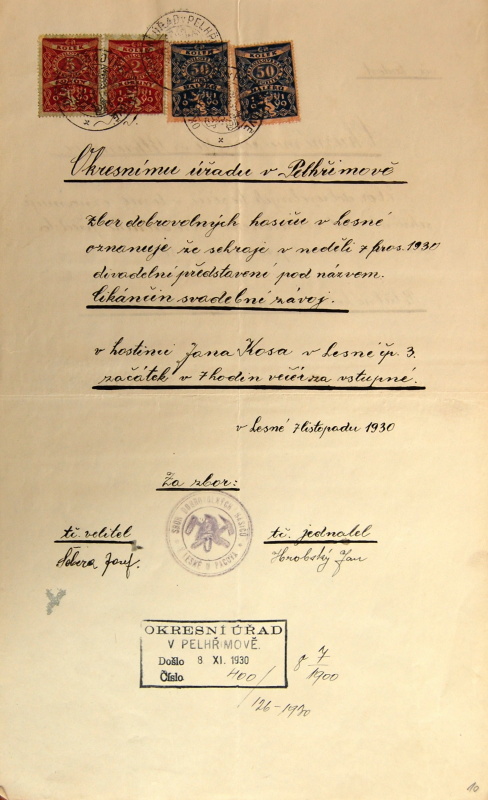 KOLEK
KOLEK
KOLEK
KOLEK
5
50
50
Okresnímu úřadu v Pelhřimově
Zbor dobrovolných hasiču v Lesné
oznamuje že sehraje v neděli 7 pros. 1930
divadelní představení pod názvem.
Cikánčin svadební závoj.
v hostinci Jana Kosa v Lesné čp. 3.
začátek v 7 hodin večér za vstupné.
v Lesné 7 listopadu 1930
Za zbor:
SBOR DOBROVOLNÝCH HASIČŮ
V LESNÉ U PACOVA
tč. velitel
tč. jednatel
Sobera Josef.
Hrobský Jan
OKRESNÍ ÚŘAD
V PELHŘIMOVĚ.
Došlo 8 XI. 1930
Číslo 400/
7
1900
126-1930
10